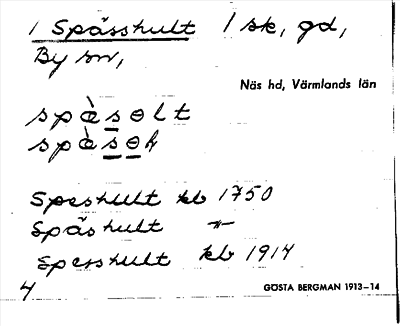 1 Spässhult 1 sk, gd,
By sn,
Näs hd, Värmlands län
spàsɵlt
spàsɵk
Speshult kb 1750
Späshult –"–
Spesshult kb 1914
4
GÖSTA BERGMAN 1913–14